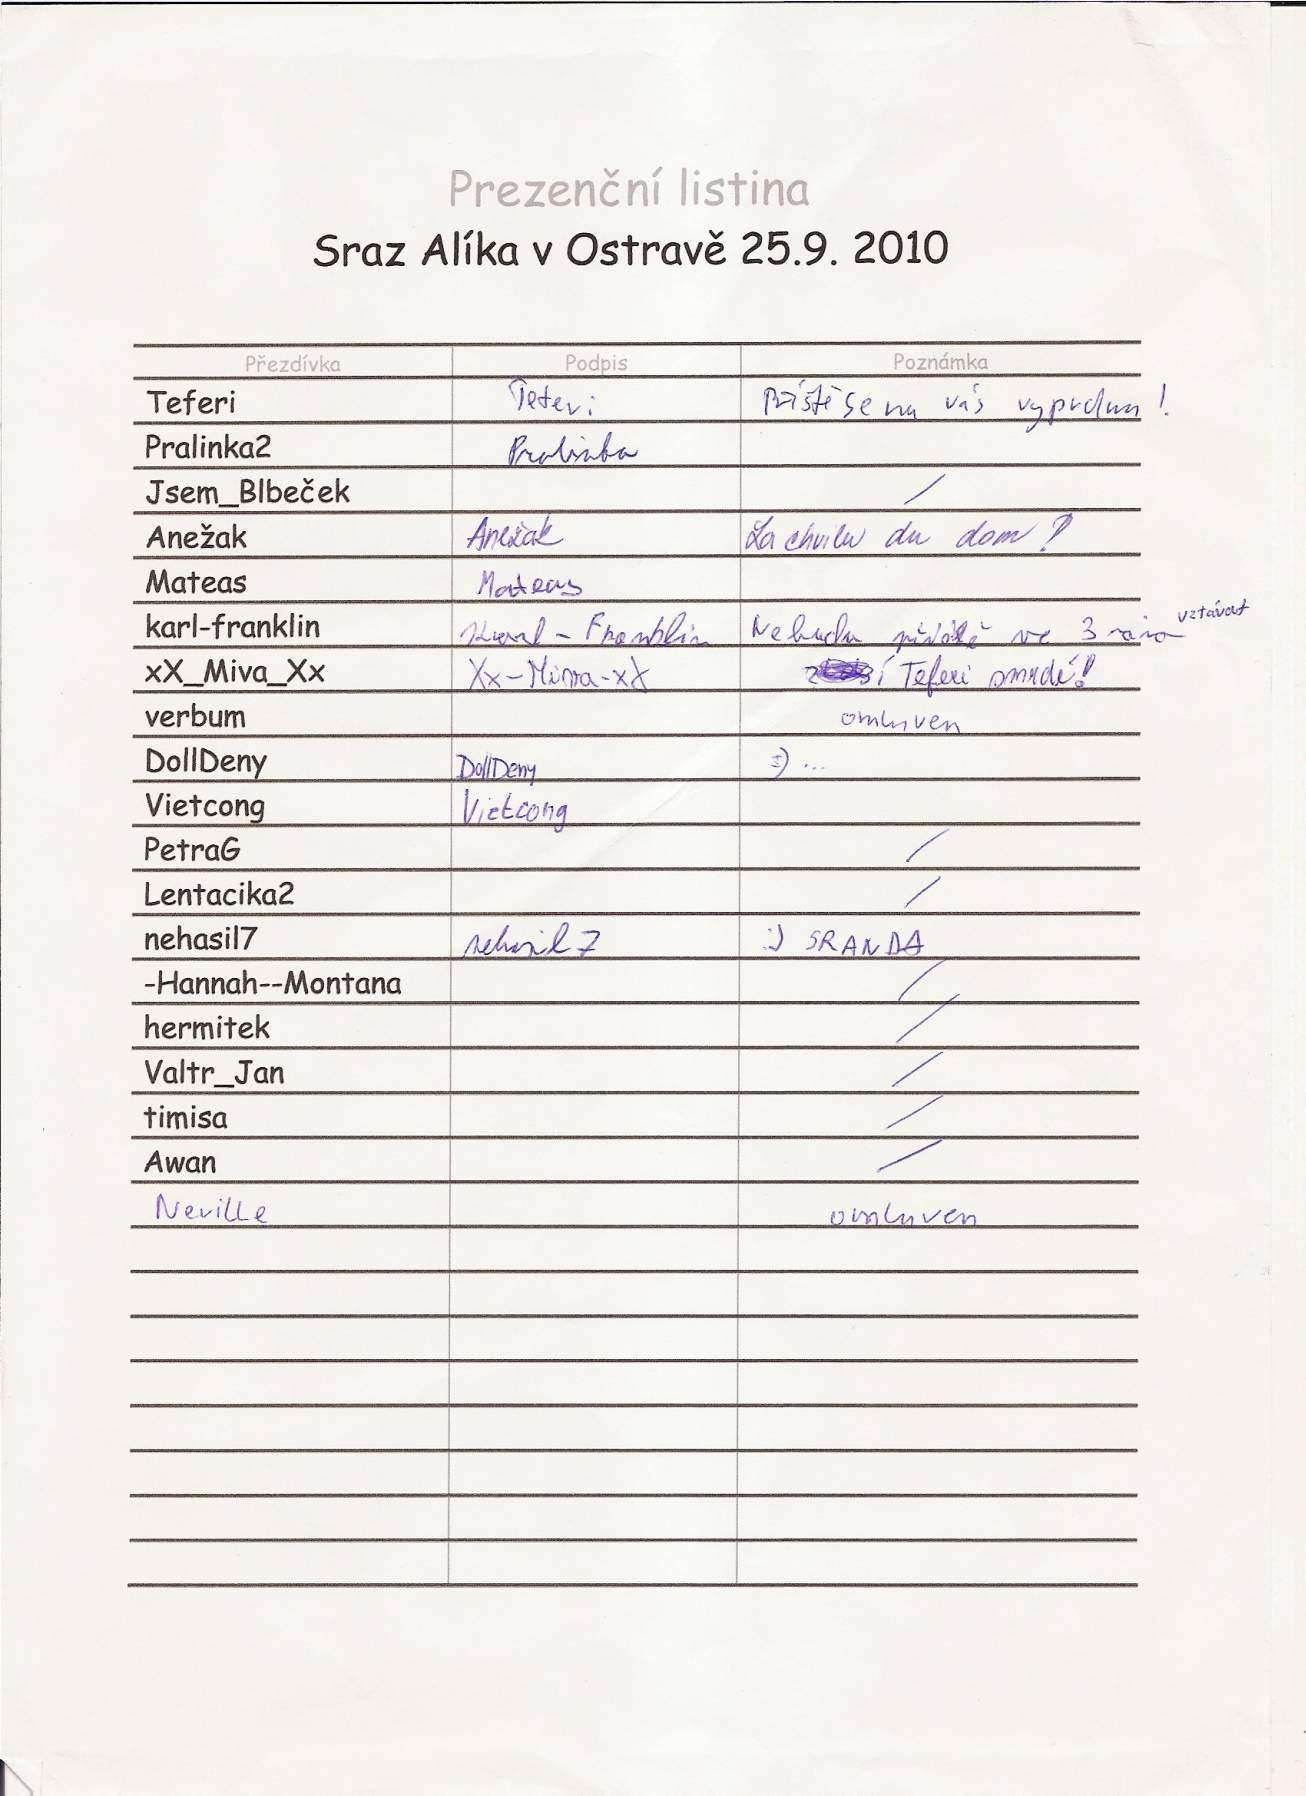 Prezenční listina
Sraz Alíka v Ostravě 25.9. 2010
Přezdívka Podpis Poznámka
Teferi Teferi Příště se na vás vyprdnu!
Pralinka2 Pralinka
Jsem_Blbeček /
Anežak Anežak Za chvilu du dom!
Mateas Mateas
karl-franklin Karl-Franklin Nebudu příště ve 3 ráno vztávat
xX_Miva_Xx Xx-Miva-xX Teferi smrdí!
verbum omluven
DollDeny DollDeny :) ...
Vietcong Vietcong
PetraG /
Lentacika2 /
nehasil7 nehasil7 :) SRANDA
-Hannah--Montana /
hermitek /
Valtr_Jan /
timisa /
Awan /
Neville omluven